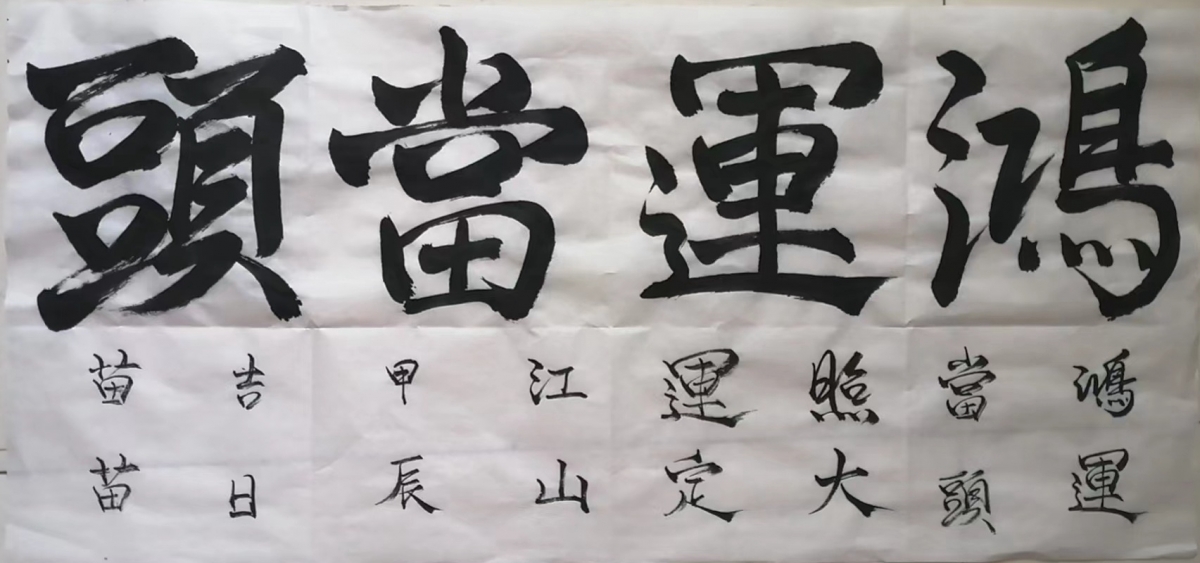 鴻運當頭
鴻運
當頭
照大
運定
江山
甲辰
吉日
苗苗